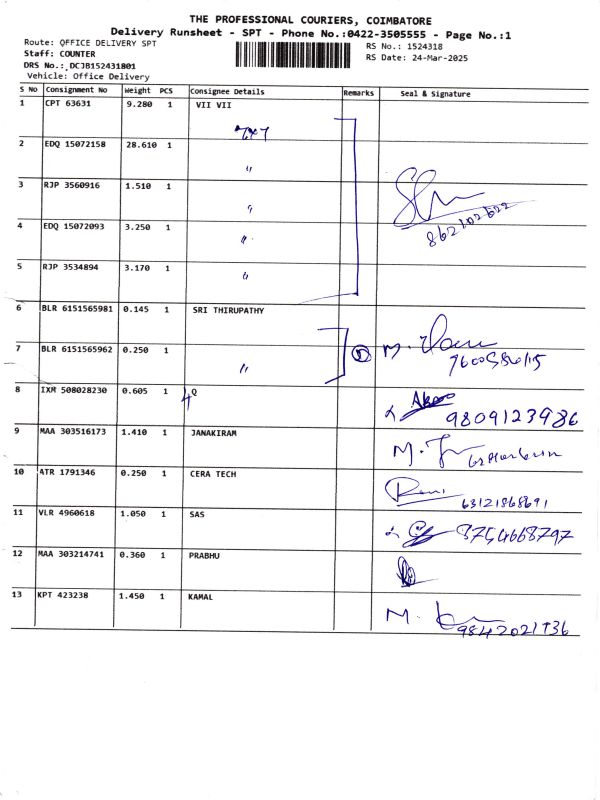 THE PROFESSIONAL COURIERS, COIMBATORE
Delivery Runsheet - SPT - Phone No.:0422-3505555 - Page No.:1
Route: OFFICE DELIVERY SPT
RS No.: 1524318
Staff: COUNTER
RS Date: 24-Mar-2025
DRS No.: DCJB152431801
Vehicle: Office Delivery
S No Consignment No Weight PCS Consignee Details Remarks Seal & Signature
1 CPT 63631 9.280 1 VII VII
7x7
2 EDQ 15072158 28.610 1
"
3 RJP 3560916 1.510 1
"
4 EDQ 15072093 3.250 1
"
862102622
5 RJP 3534894 3.170 1
"
6 BLR 6151565981 0.145 1 SRI THIRUPATHY
7 BLR 6151565962 0.250 1
"
M.
8 IXM 508028230 0.605 1 Q
9809123986
9 MAA 303516173 1.410 1 JANAKIRAM
M.
10 ATR 1791346 0.250 1 CERA TECH
63121868691
11 VLR 4960618 1.050 1 SAS
8754668797
12 MAA 303214741 0.360 1 PRABHU
13 KPT 423238 1.450 1 KAMAL
M.